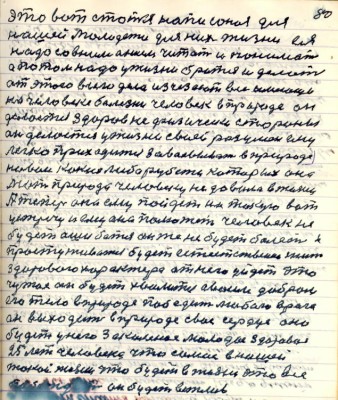 80
это вот статья написаная для
нашей молодежи для них жизни ея
надо со внима нием читат и понимат
а потом надо ужизни братся и делат
от этого всего дела изчезают вся имеющи
на человеке балезни человек в природе он
делается здоров не физически стораны
он делается ужизни своей разумом ему
легко приходится заваевыват в природе
новым какие либо рубежи каторих она
мат природа человеку не давала в жизни
Атепер она ему пойдет на такую вот
уступу и ему она поможет человек не
будет ошибатся он же не будет болет и
простуживатся будет естественая жит
здорового характера от него уйдет это
чужая он будет хвалится своим добром
его тело в природе победит любого врага
он выходит в природе свае сердце оно
будет у него закаленое молодое здоровое
25 лет человека что самий в нашей
такой жизни это будет в жизни это все
он будет вежлив